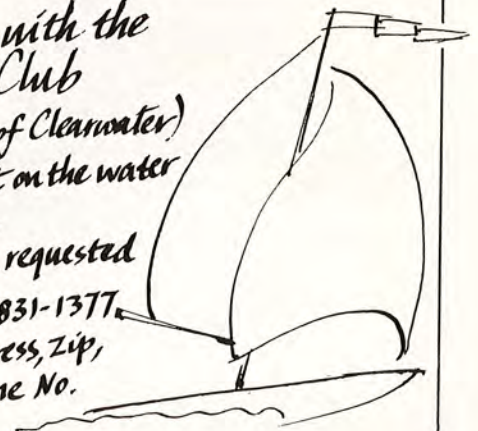 with the
Club
of Clearwater)
on the water
requested
831-1377
Zip,
No.